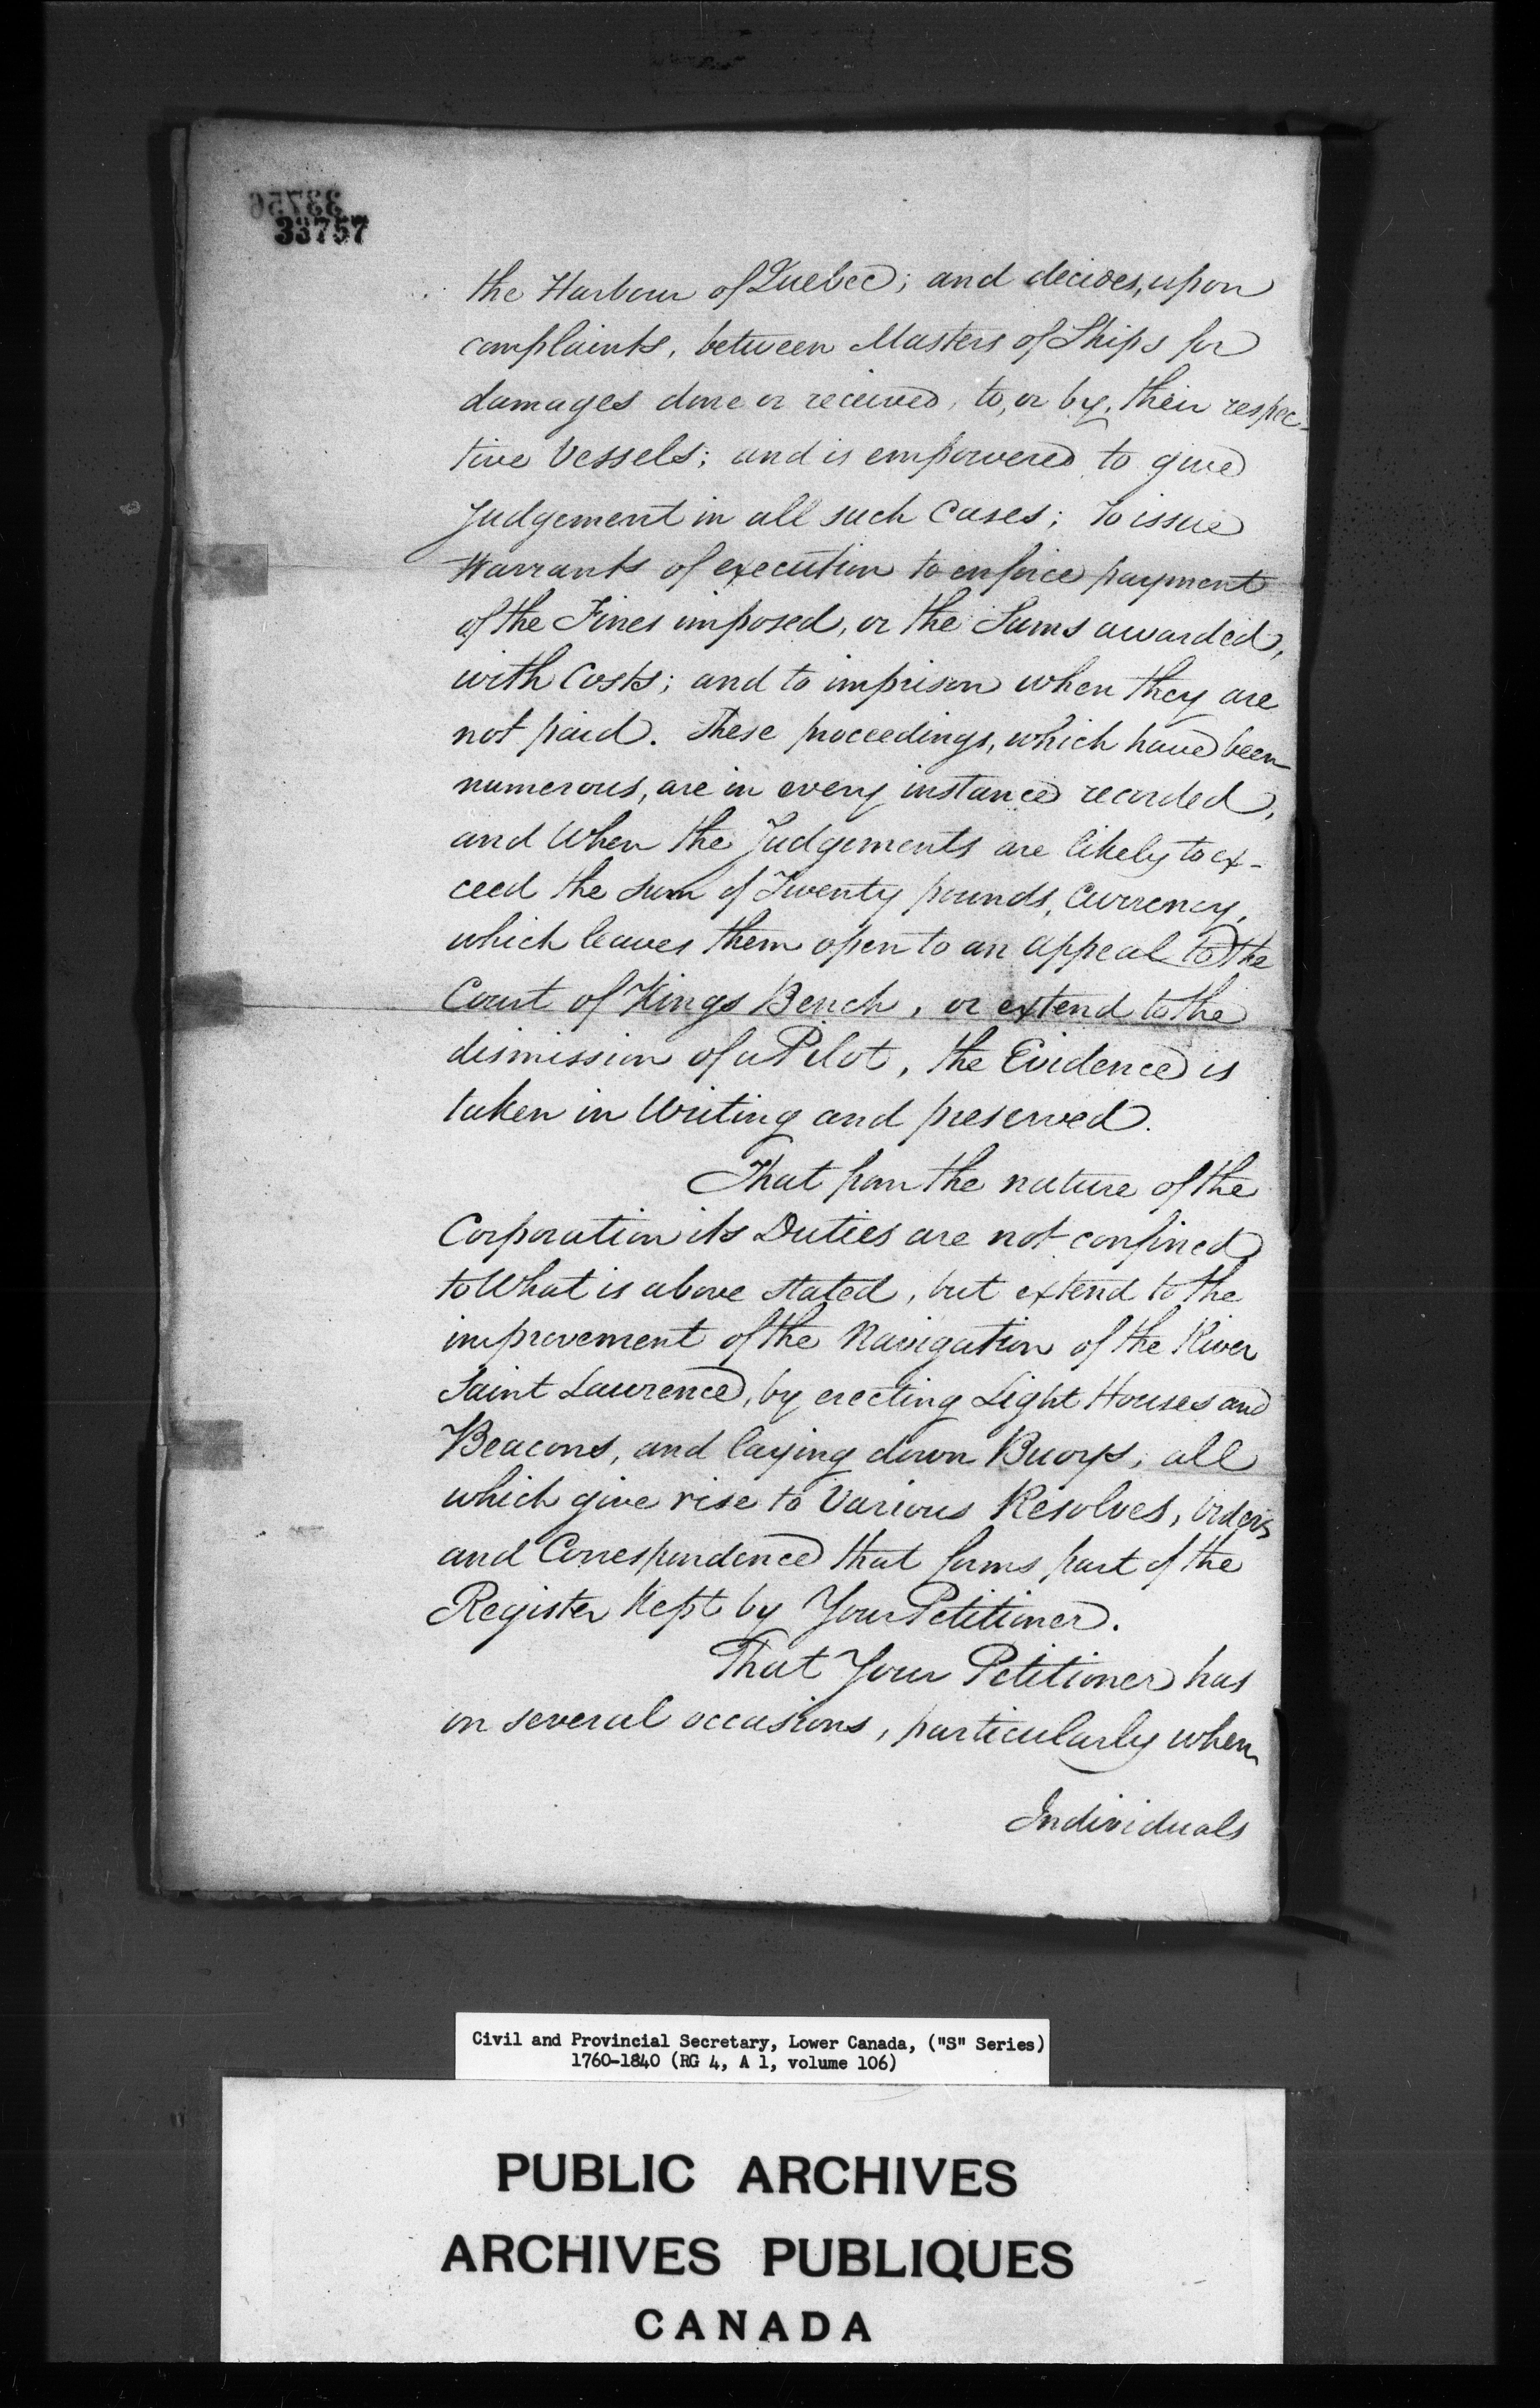 33756
33757
the Harbour of Quebec; and decides, upon
complaints, between Masters of Ships for
damages done or received, to, or by, their respec-
tive Vessels; and is empowered to give
Judgement in all such Cases; To issue
Warrants of execution to enforce payment
of the Fines imposed, or the Sums awarded,
with Costs; and to imprison when they are
not paid. These proceedings, which have been
numerous, are in every instance recorded,
and When the Judgements are likely to ex-
ceed the sum of Twenty pounds, Currency,
which leaves them open to an appeal to the
Court of Kings Bench, or extend to the
dismission of a Pilot, the Evidence is
taken in Writing and preserved.
That from the nature of the
Corporation its Duties are not confined
to What is above stated, but extend to the
improvement of the Navigation of the River
Saint Laurence, by erecting Light Houses and
Beacons, and laying down Buoys; all
which give rise to Various Resolves, Orders
and Correspondence that forms part of the
Register Kept by Your Petitioner.
That Your Petitioner has
on several occasions, particularly when
Individuals
Civil and Provincial Secretary, Lower Canada, ("S" Series)
1760-1840 (RG 4, A 1, volume 106)
PUBLIC ARCHIVES
ARCHIVES PUBLIQUES
CANADA